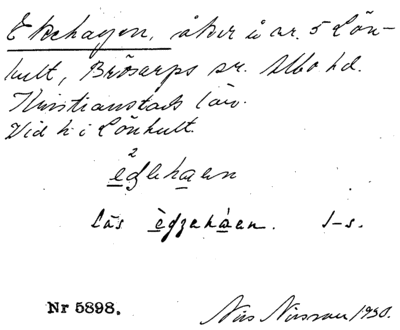 Ekehagen, åker å nr. 5 Lön-
hult, Brösarps sn. Albo hd.
Kristianstads län.
Vid h i Lönhult.
2
egehaen
läs ègehàen. 1-s.
Nr 5898. 1930.